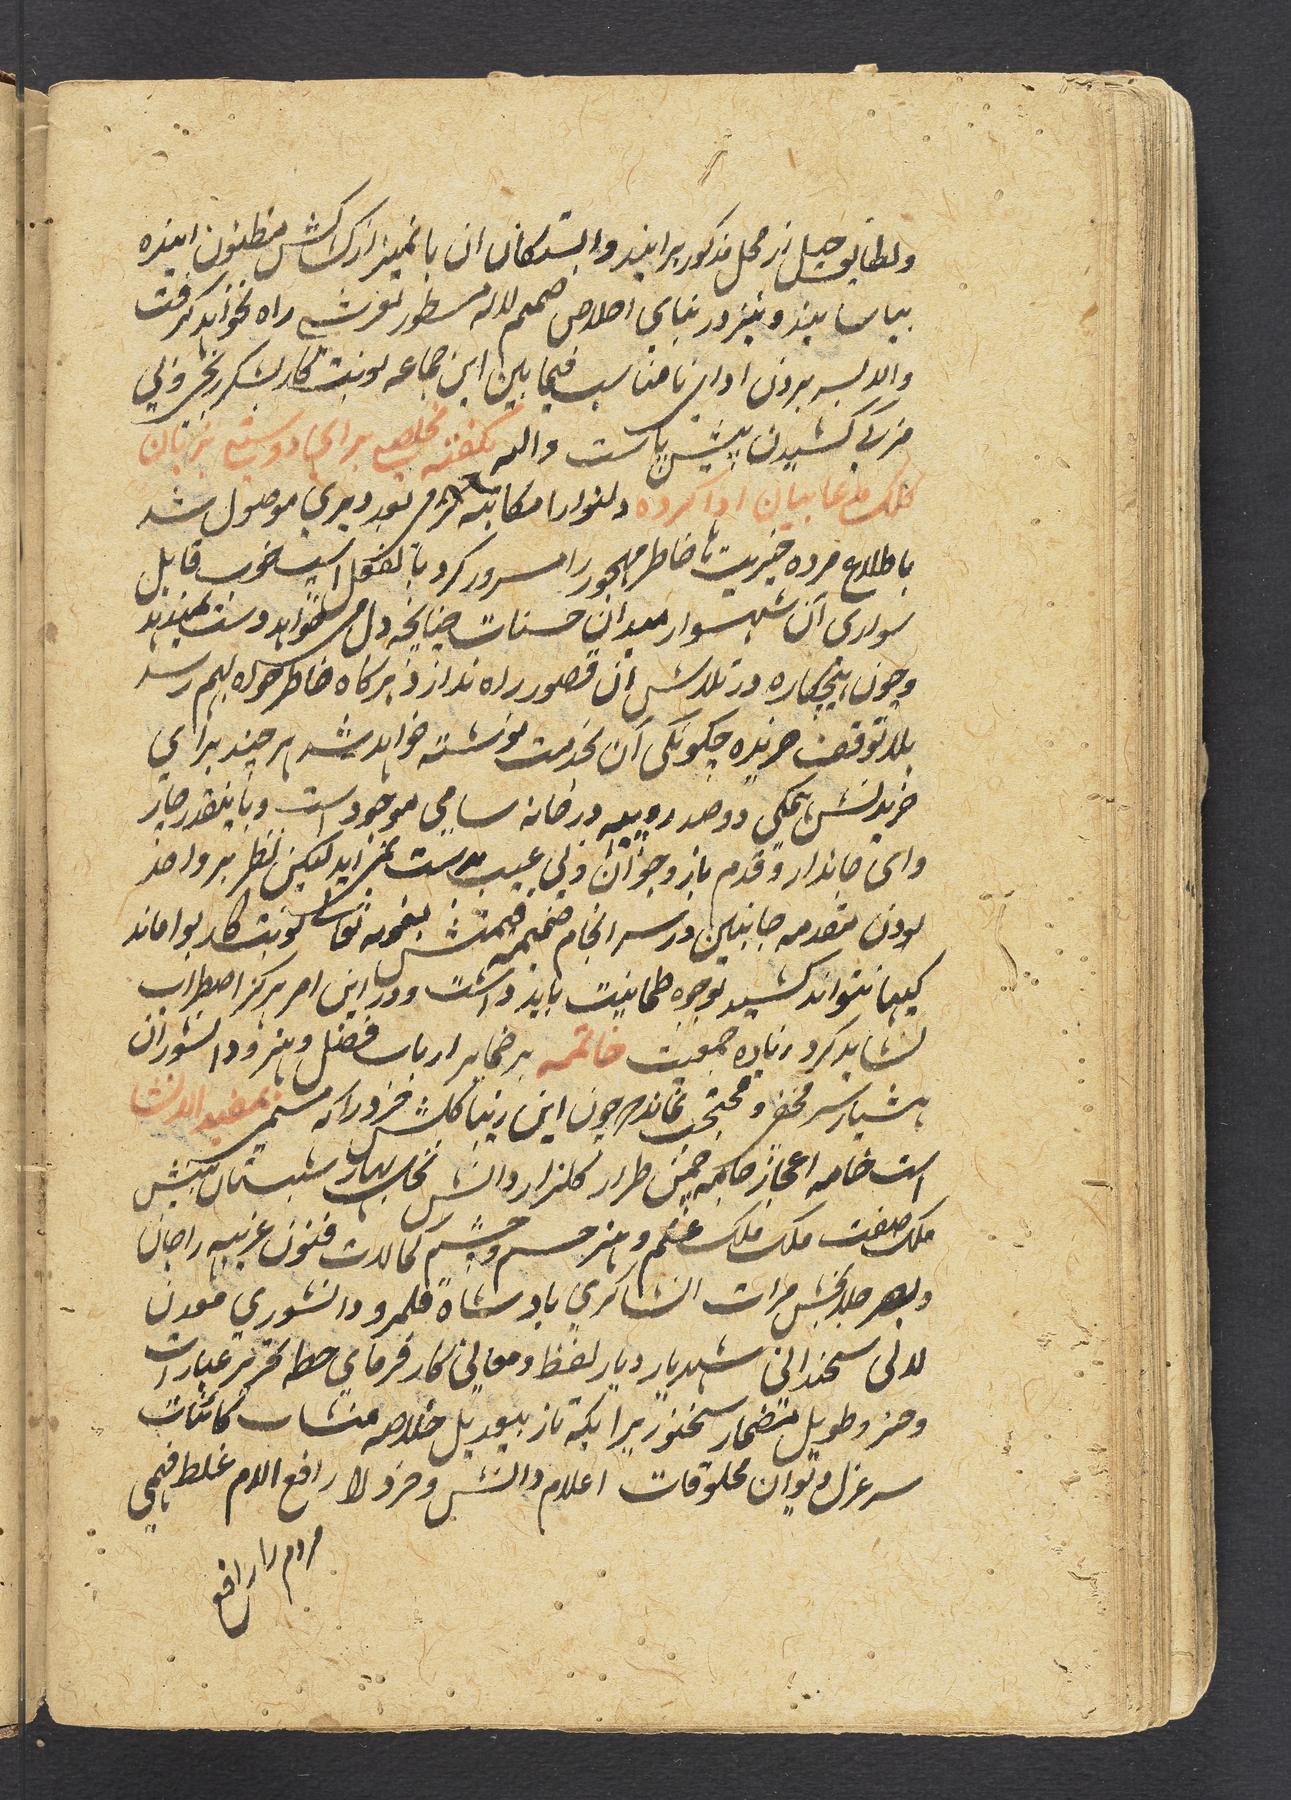 ولطایف حیل از محل مذکور برایند و ابستکان ان با نمیز از کشاکش مظنون ایذه
بیاسایند و نیز در بنای اخلاص صمیم لاله مسطور لغزشی راه نخواهد کرفت
والا بسر بردن ادای نامناسب فیمابین این جماعه نوبت کار بشکررنجی و بی
مزکی کشیدن پیش پاست والله نکفته مخلصی برای دوستی بزبان
کلک مدعا بیان ادا کرده دلنوازا مکاتبه بعد دیری موصول شد
باطلاع مژده خیریت‌ها خاطر مهجور را مسرور کرد بالفعل اسپ خوب قابل
سواری آن شهسوار میدان حسنات چنانچه دل میخواهد دست نمیدهد
وچون اینچکاره در تلاش ان قصور راه نداده هرکاه خاطرخواه بهم رسد
بلا توقف خریده چکونکی آن بخدمت نوشته خواهد شد هر چند برای
خریدنش همکی دوصد روپیه در خانه سامی موجود است و باینقدر چار
وای جاندار و قدم باز و جوان و بی عیب بدست نمی اید لیکن نظر بر واحد
بودن مقدمه جانبین در سرانجام ضمیمه قیمتش بنحویه نوبت کار بوا ماند
کیها نتواند کشید بوجوه طمانیت باید داشت و در این امر هرکز اضطراب
نشاید کرد زیاده جمعیت خاتمه بر ضمایر ارباب فضل و هنر و دانشوران
هشیار سر مخفی و محتجب نماند که چون این زیبا کلشن خرد را که مسمی بمفید الانشا
است خامه اعجاز چمن طراز کلزار دانش نخلبند بهار شبستان بینش
ملک صفت ملک ملک علم و هنر جسم و چشم کمالات فنون غریبه را جان
وبصر جلابخش مرات انشاکری بادشاه قلمرو دانشوری معدن
لالی سخندانی شهریار دیار لفظ و معانی کارفرمای خطه تحریر عبارات
وجیز و طویل مضمار سخنوری را یکه تاز بیعدیل خلاصه منشات کائنات
سر غزل دیوان مخلوقات اعلام دانش و خرد را رافع الام غلط فهمی
مردم را رافع